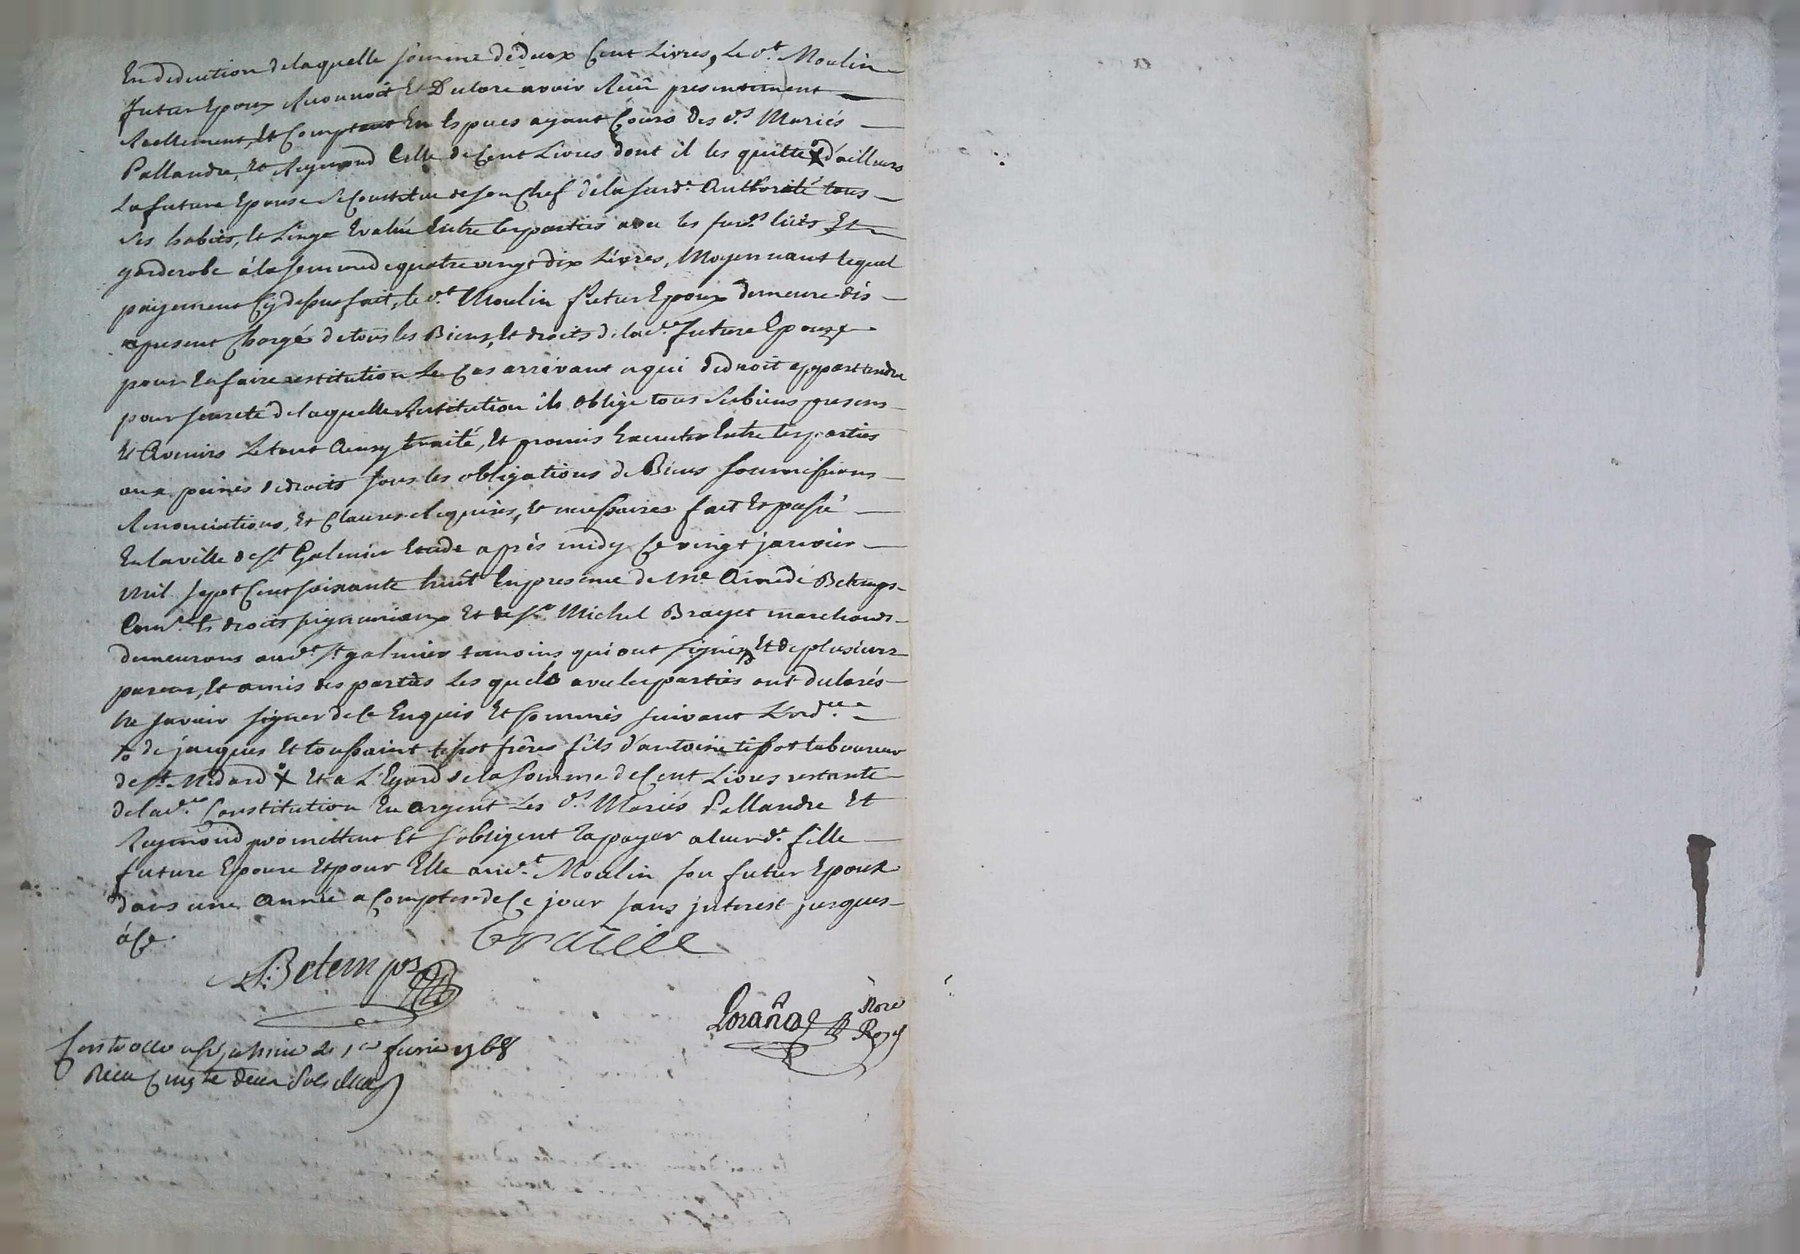 En deduction de laquelle somme de deux Cent Livres, Le d.t Moulin
futur Epoux Reconnoit Et Declare avoir Reçu presentement
Reellement, Et Comptant En Especes ayant Cours des d.s Mariés
Pallandre, Et Reymond Celle de Cent Livres dont il les quitte d'ailleurs
La future Epouse se Constitue de son Chef de la susd.e Authorité tous
ses habits, Et Linge Evalué Entre les parties avec les susd.s lits Et
garderobe á la somme de quatre vingt dix Livres, Moyennant lequel
payement Cy dessus fait, le d.t Moulin futur Epoux demeure dés
apresent Chargé de tous les Biens, Et droits de lad.e future Epouse
pour En faire restitution Le Cas arrivant a qui de droit appartiendra
pour sureté de laquelle Restitution il oblige tous ses biens presens
Et Avenirs Le tout Ainsy traité, Et promis Executer Entre les parties
aux peines de droits sous les obligations de Biens soumissions
Renonciations, Et Clauses Requises, Et necessaires fait Et passé
En la ville de S.t Galmier Etude après midy Le vingt janvier
Mil sept Cent soixante huit En presence de M.e Aimé Betemps
Com.re Es droits seigneuriaux Et de S.r Michel Brayet marchands
demeurans aud.t S.t galmier temoins qui ont signés Et de plusieurs
parens, Et amis des parties Les quels avec les parties ont declarés
Ne savoir signer de Ce Enquis Et sommés suivant L'ord.ce
de jacques Et toussaint tissot frères fils d'antoine tissot laboureur
de S.t Médard Et a L'Egard de la somme de Cent Livres restante
de lad.e Constitution En argent Les d.s Mariés Pallandre Et
Reymond promettent Et s'obligent La payer a leur d.e fille
future Epouse Et pour Elle aud.t Moulin son futur Epoux
dans une Année a Compter de Ce jour sans jnterest jusques
á Ce
Betemps
Controllé a S.t galmier le 1.er fevrier 1768
Reçu Cinq